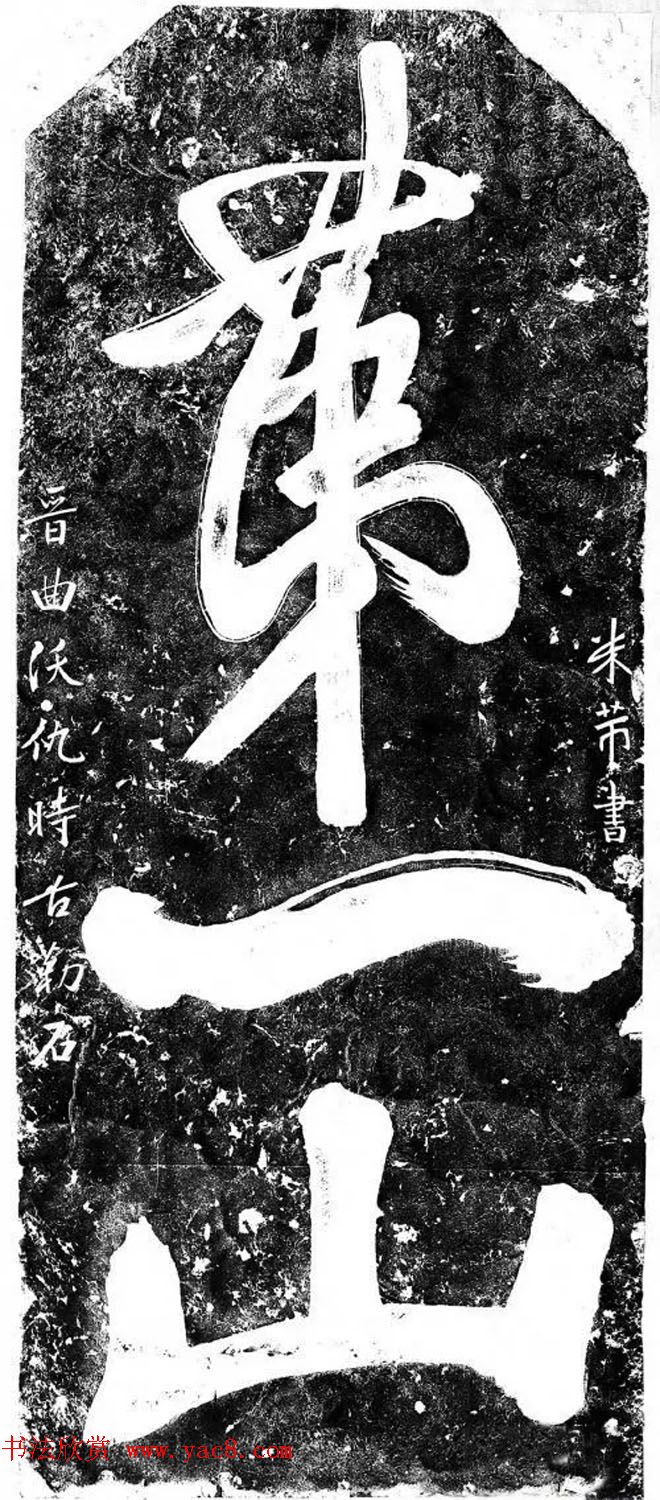 第一山
米芾書
晉曲沃仇時古勒石
书法欣赏 www.yac8.com